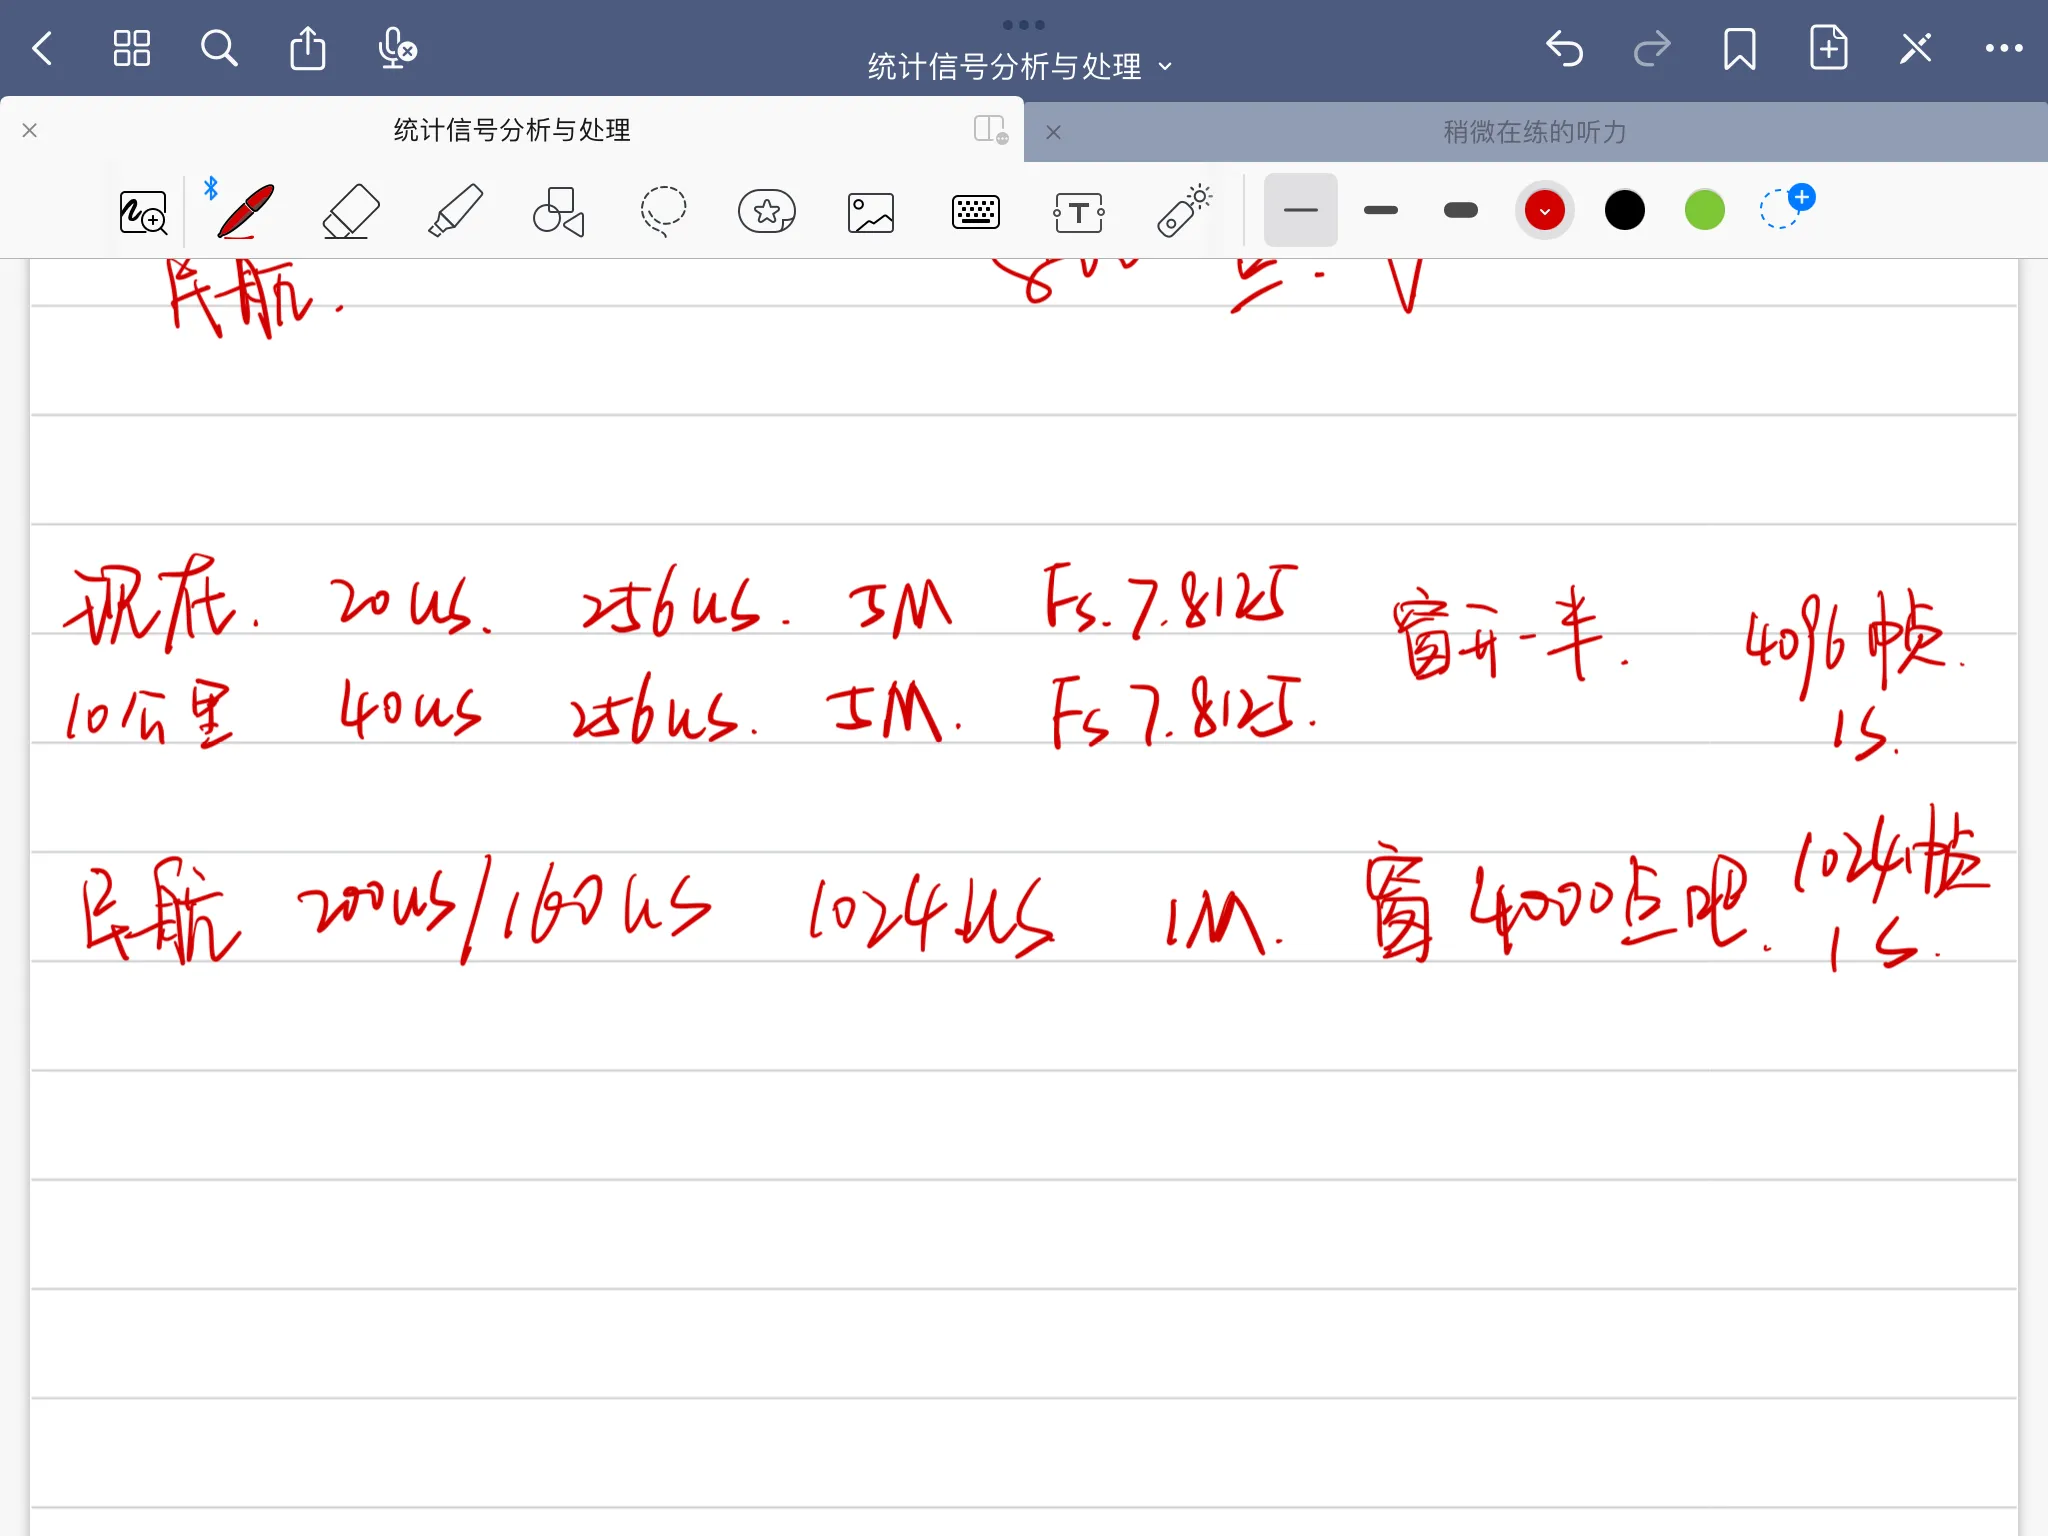 统计信号分析与处理
统计信号分析与处理
稍微在练的听力
T
民航.
现在. 20us. 256us. 5M Fs.7.8125 窗开一半. 4096帧.
10公里 40us 256us. 5M. Fs 7.8125. 1s.
民航 200us/160us 1024us 1M. 窗4000点吧. 1024帧
1s.